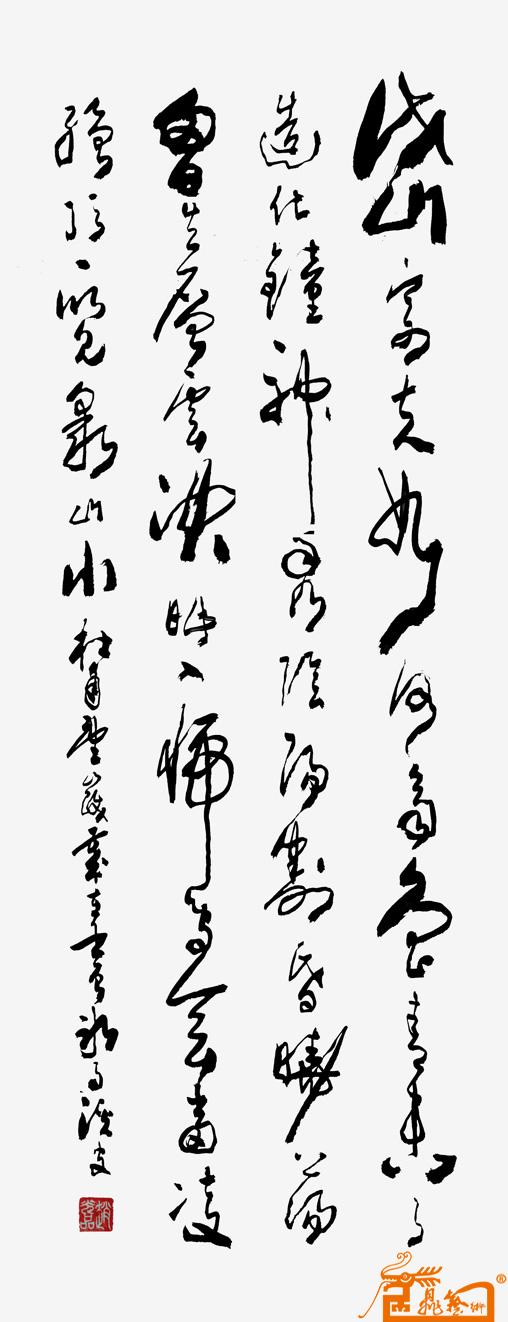 岱宗夫如何齊魯青未了
造化鐘神秀陰陽割昏曉蕩
胸生層雲決眥入歸鳥會當凌
絕頂一覽衆山小 杜甫望嶽